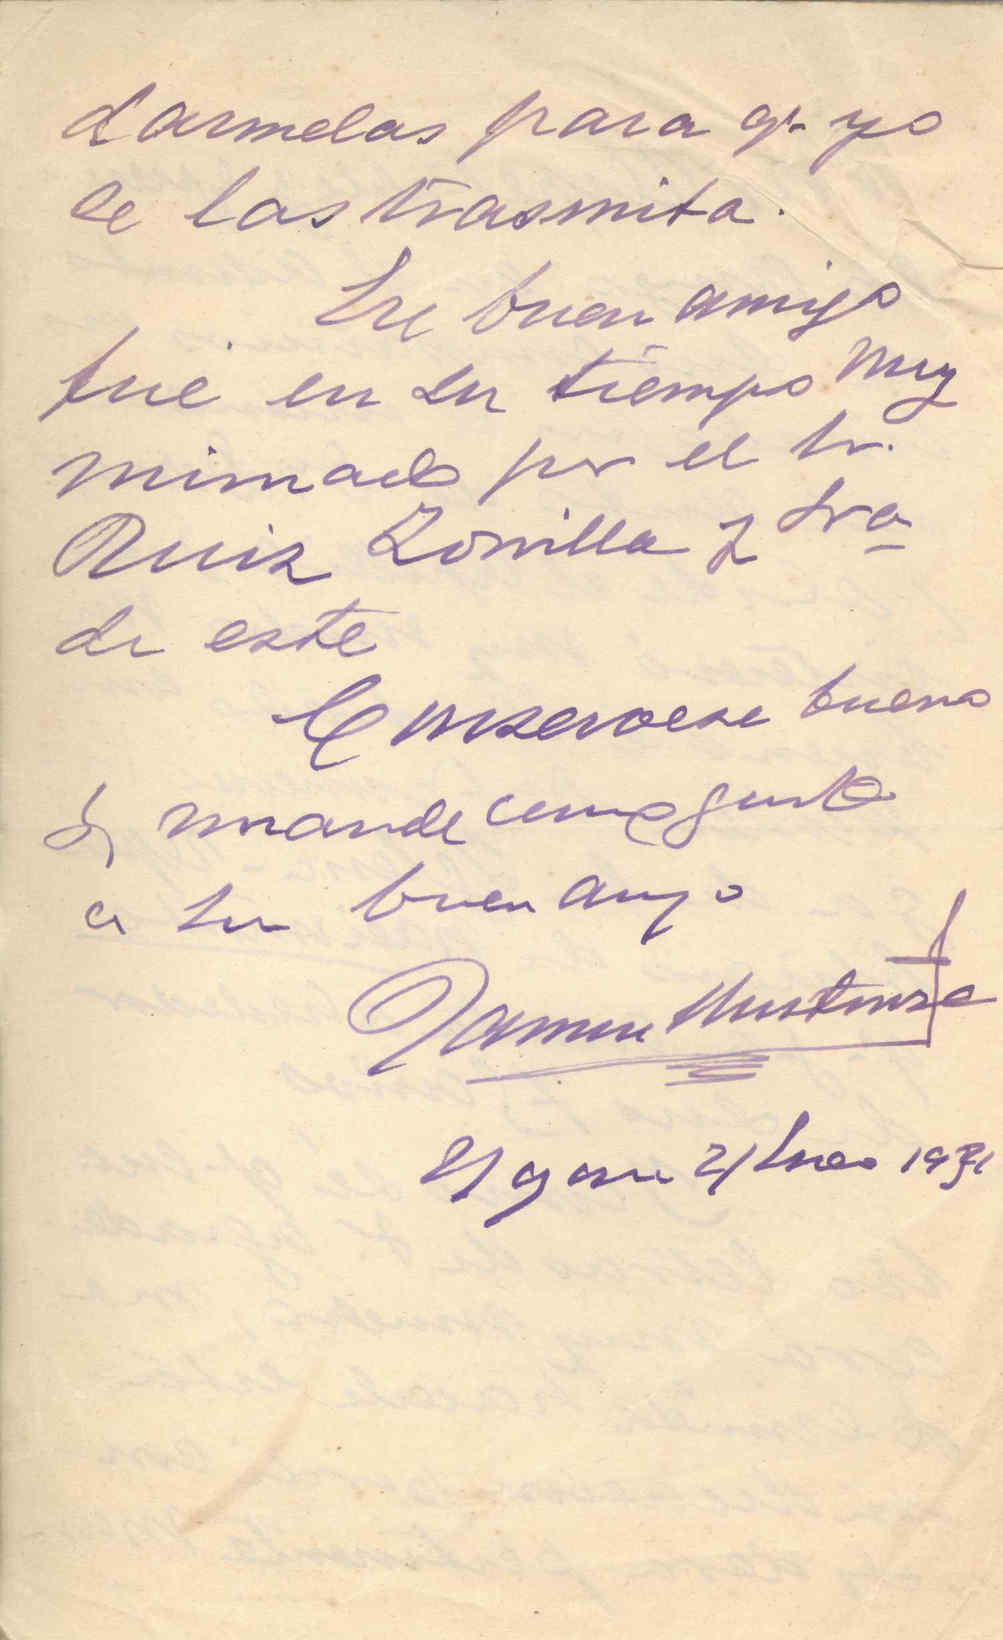 darmelas para qe yo
se las trasmita.
Ese buen amigo
fué en su tiempo muy
mimado por el Sr.
Ruiz Zorrilla y Sra
de este
Consérvese bueno
y mande como guste
a su buen amigo
Ramon
21 Enero 1931